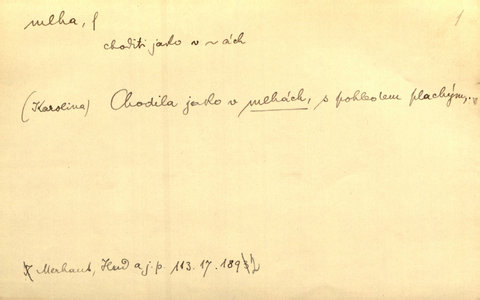 mlha, f
1
choditi jako v ~ ách
(Karolina) Chodila jako v mlhách, s pohledem plachým,
Merhaut, Had a j. p. 113. 17. 1892